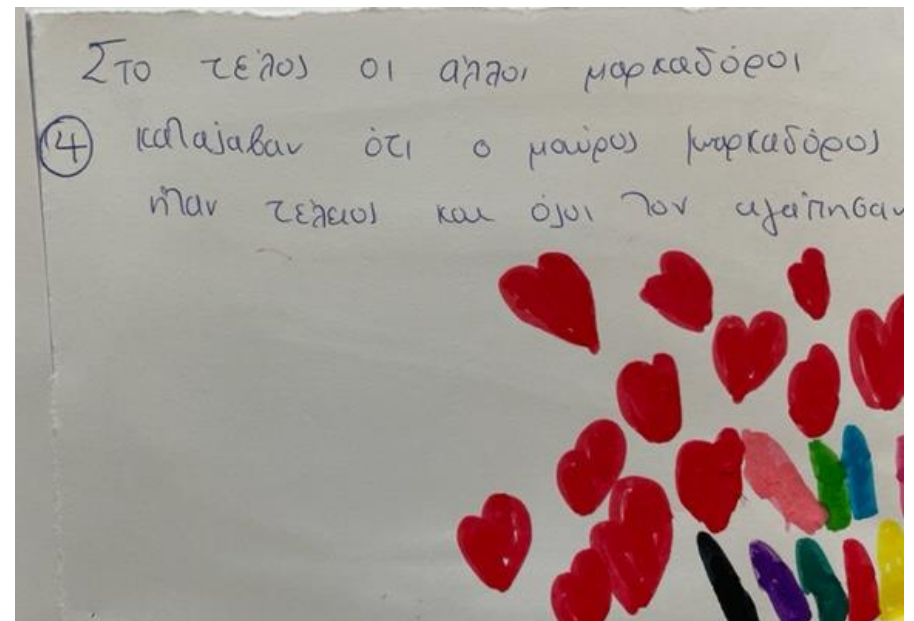 Στο τέλος οι άλλοι μαρκαδόροι
④ κατάλαβαν ότι ο μαύρος μαρκαδόρος
ήταν τέλειος και όλοι τον αγάπησαν